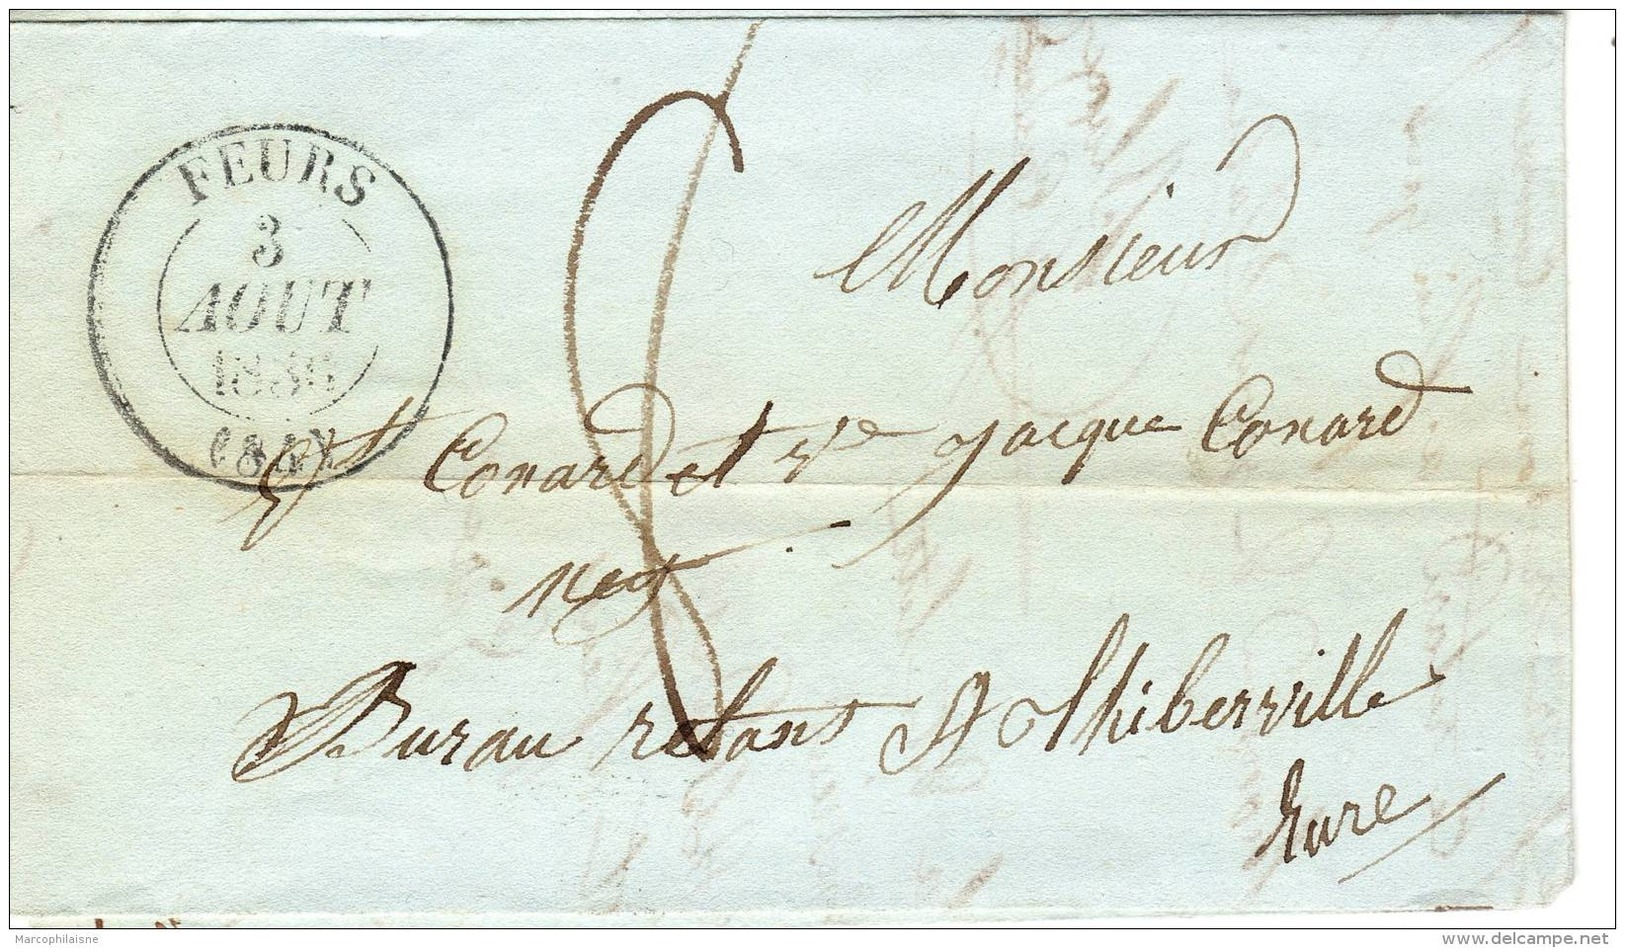 FEURS
3
AOUT
(84)
8
Monsieur
Conard et Ve Jacque Conard
neg
Burau restans A Thiberville
Eure
Marcophilaisne
delcampe.net